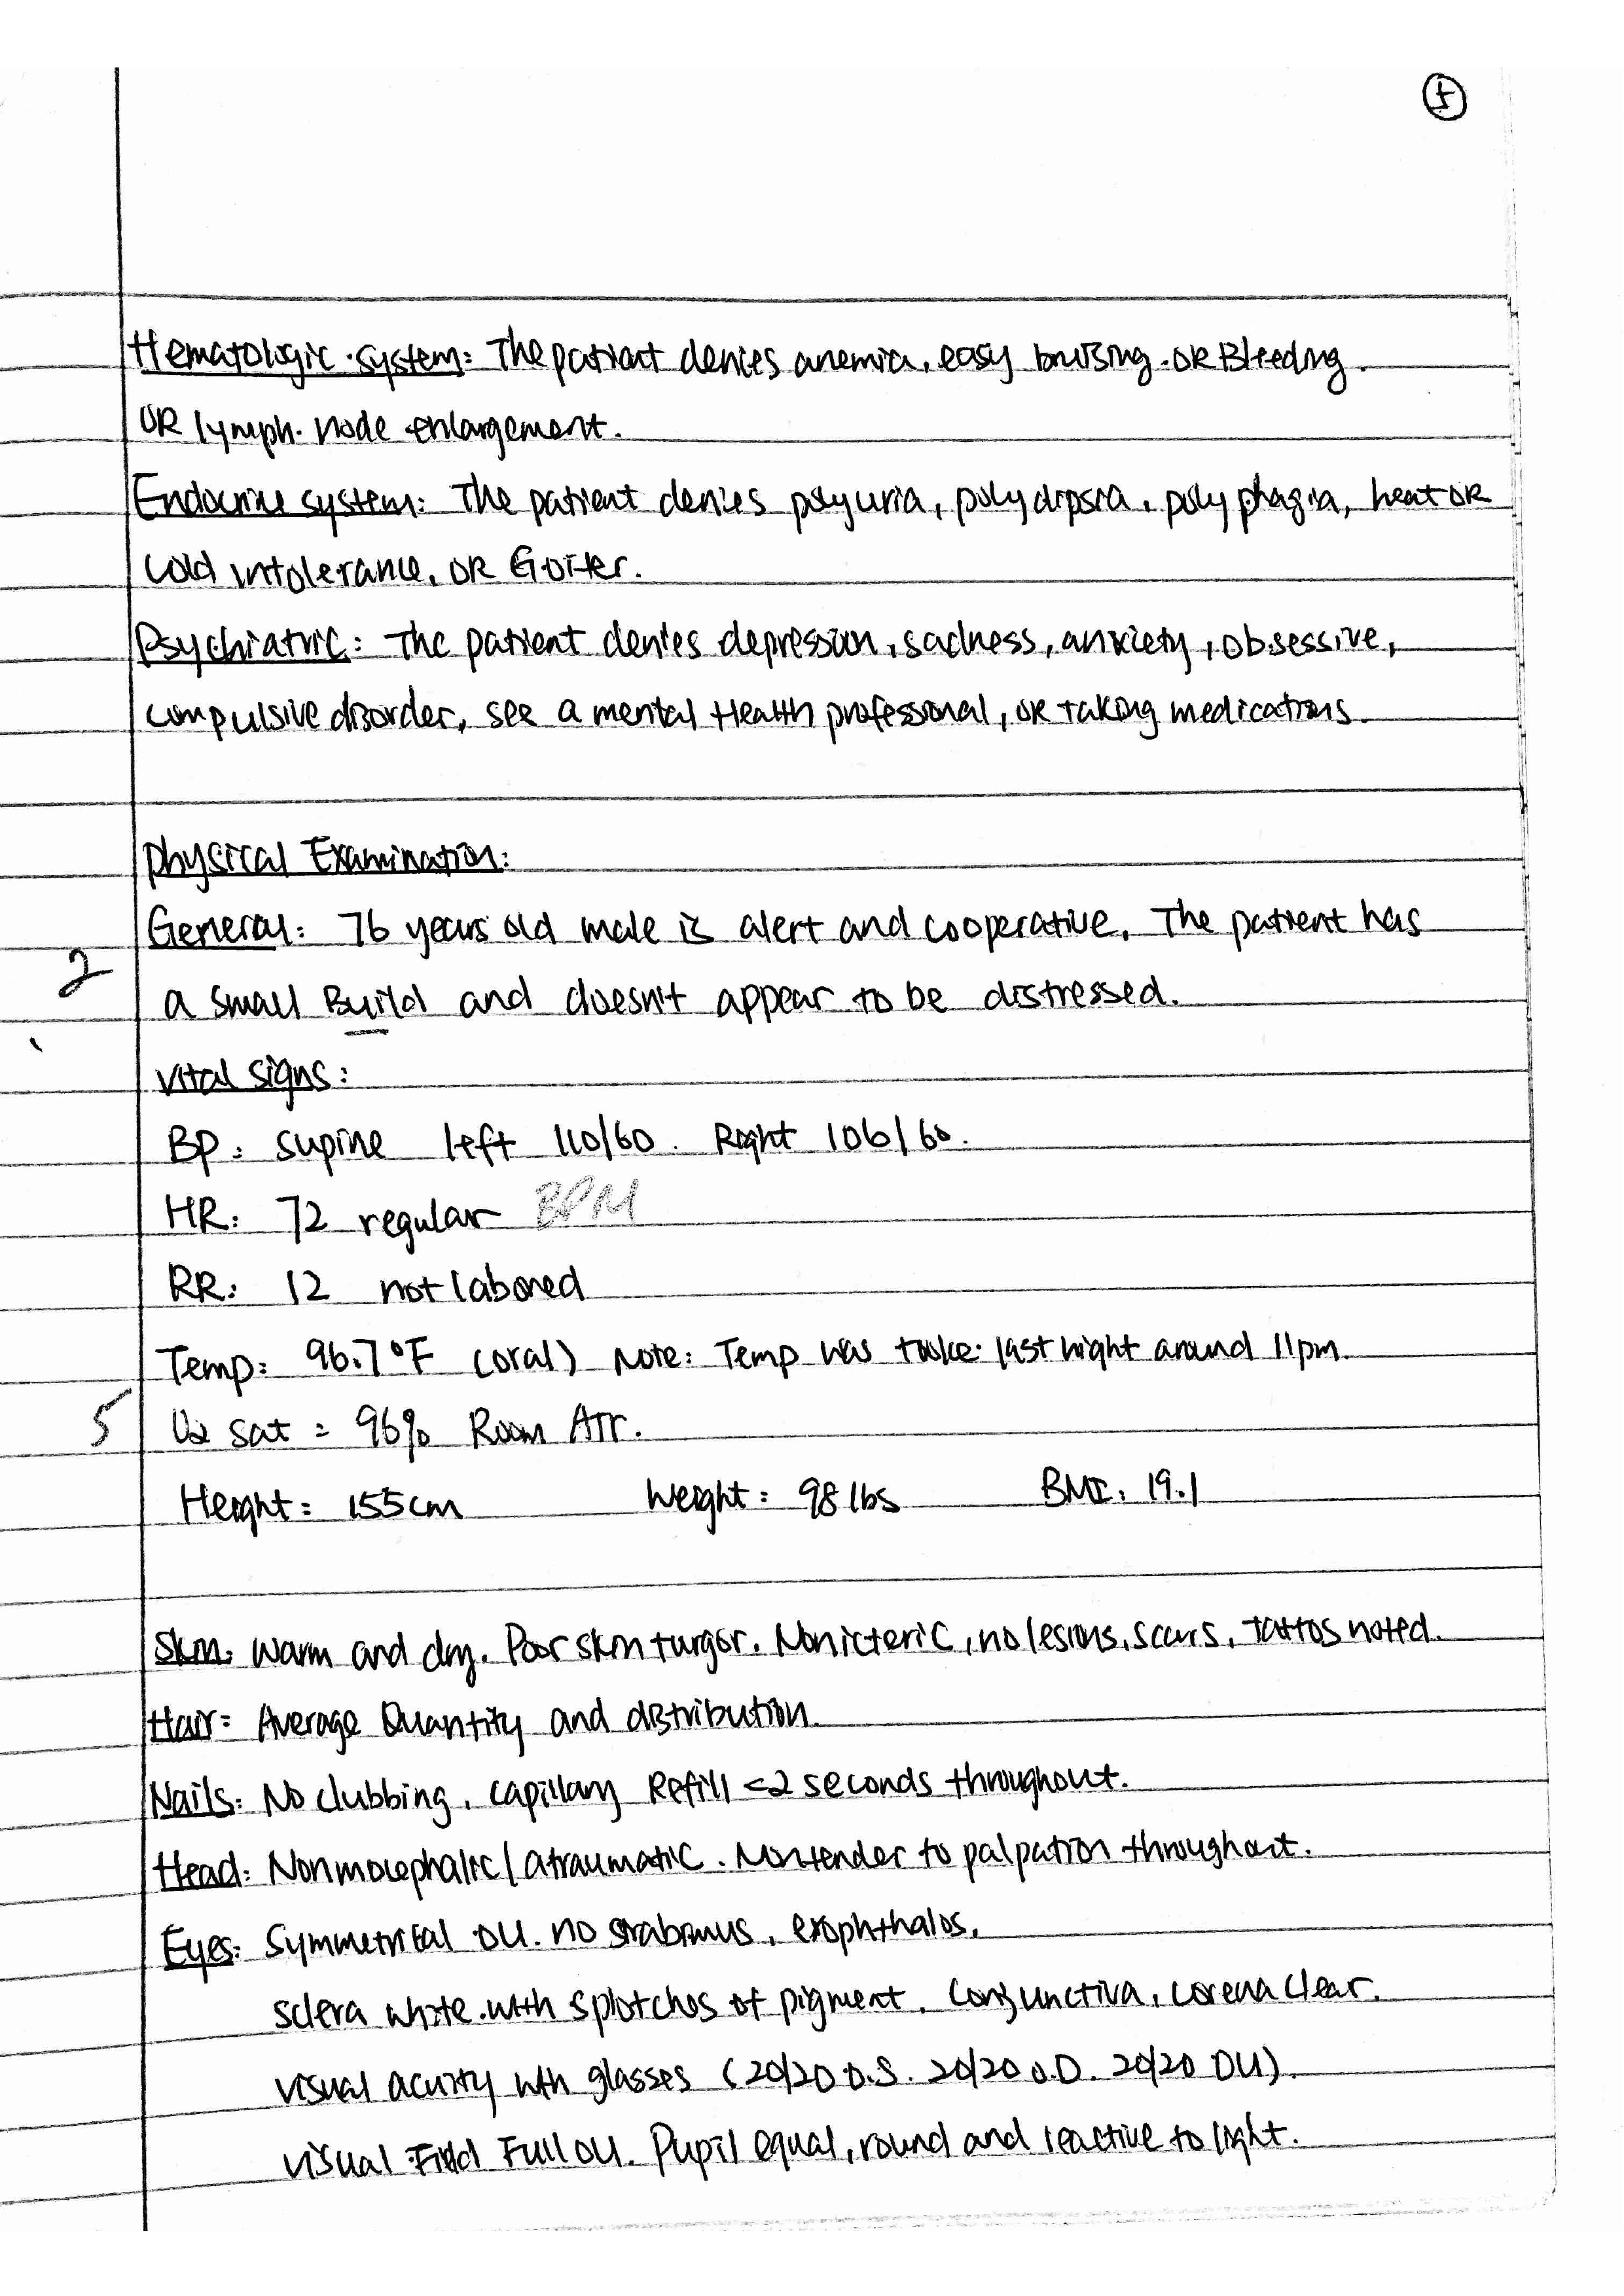 5
Hematologic system: The patient denies anemia, easy bruising OR Bleeding
OR lymph node enlargement.
Endocrine system: The patient denies polyuria, polydipsia, polyphagia, heat OR
cold intolerance, OR Goiter.
Psychiatric: The patient denies depression, sadness, anxiety, obsessive,
compulsive disorder, see a mental Health professional, OR taking medications.
Physical Examination:
General: 76 years old male is alert and cooperative. The patient has
2
a small Build and doesn't appear to be distressed.
Vital Signs:
BP: supine left 110/60. Right 106/60.
HR: 72 regular BPM
RR: 12 not labored
Temp: 96.7°F (oral) Note: Temp was tooke last night around 11pm.
5 O2 sat = 96% Room Air.
Height: 155cm Weight: 98 lbs BMI: 19.1
Skin: Warm and dry. Poor skin turgor. Nonicteric, no lesions, scars, Tattos noted.
Hair: Average Quantity and distribution.
Nails: No clubbing, capillary Refill <2 seconds throughout.
Head: Nonmocephalic/atraumatic. Nontender to palpation throughout.
Eyes: Symmetrical OU. no strabismus, exophthalos.
Sclera white with splotches of pigment. Conjunctiva, corena clear.
Visual acuity with glasses (20/20 O.S. 20/20 O.D. 20/20 OU).
Visual Field Full OU. Pupil equal, round and reactive to light.